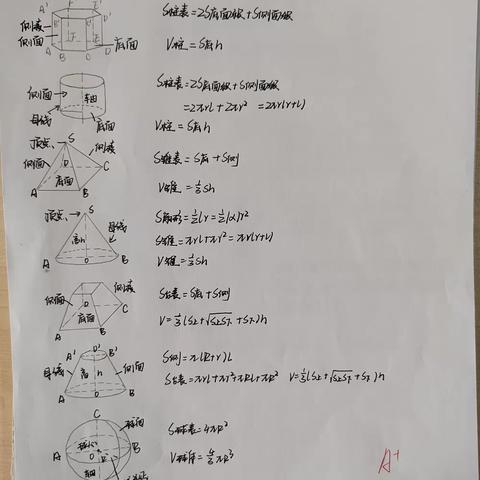 A' E' D'
侧棱
侧面
A B C D
底面
S柱表=2S底面积+S侧面积
V柱=S底h
侧面
轴
母线
底面
S柱表=2S底面积+S侧面积
=2πrl+2πr² =2πr(r+l)
V柱=S底h
顶点 S
侧棱
侧面
D C
底面
A B
S锥表=S底+S侧
V锥=⅓Sh
顶点 S
母线
高h
A O B
S扇形=½lr=½|α|r²
S锥=πrl+πr²=πr(r+l)
V锥=⅓Sh
侧面 侧棱
D C
底面
A B
S台表=S底+S侧
V=⅓(S上+√S上S下+S下)h
A' O' B'
母线 高 h 侧面
A O B
S侧=π(R+r)l
S台表=πrl+πr²+πRl+πR² V=⅓(S上+√S上S下+S下)h
C
球面
球心
A O R B
轴
S球表=4πR²
V球体=4/3πR³
A+